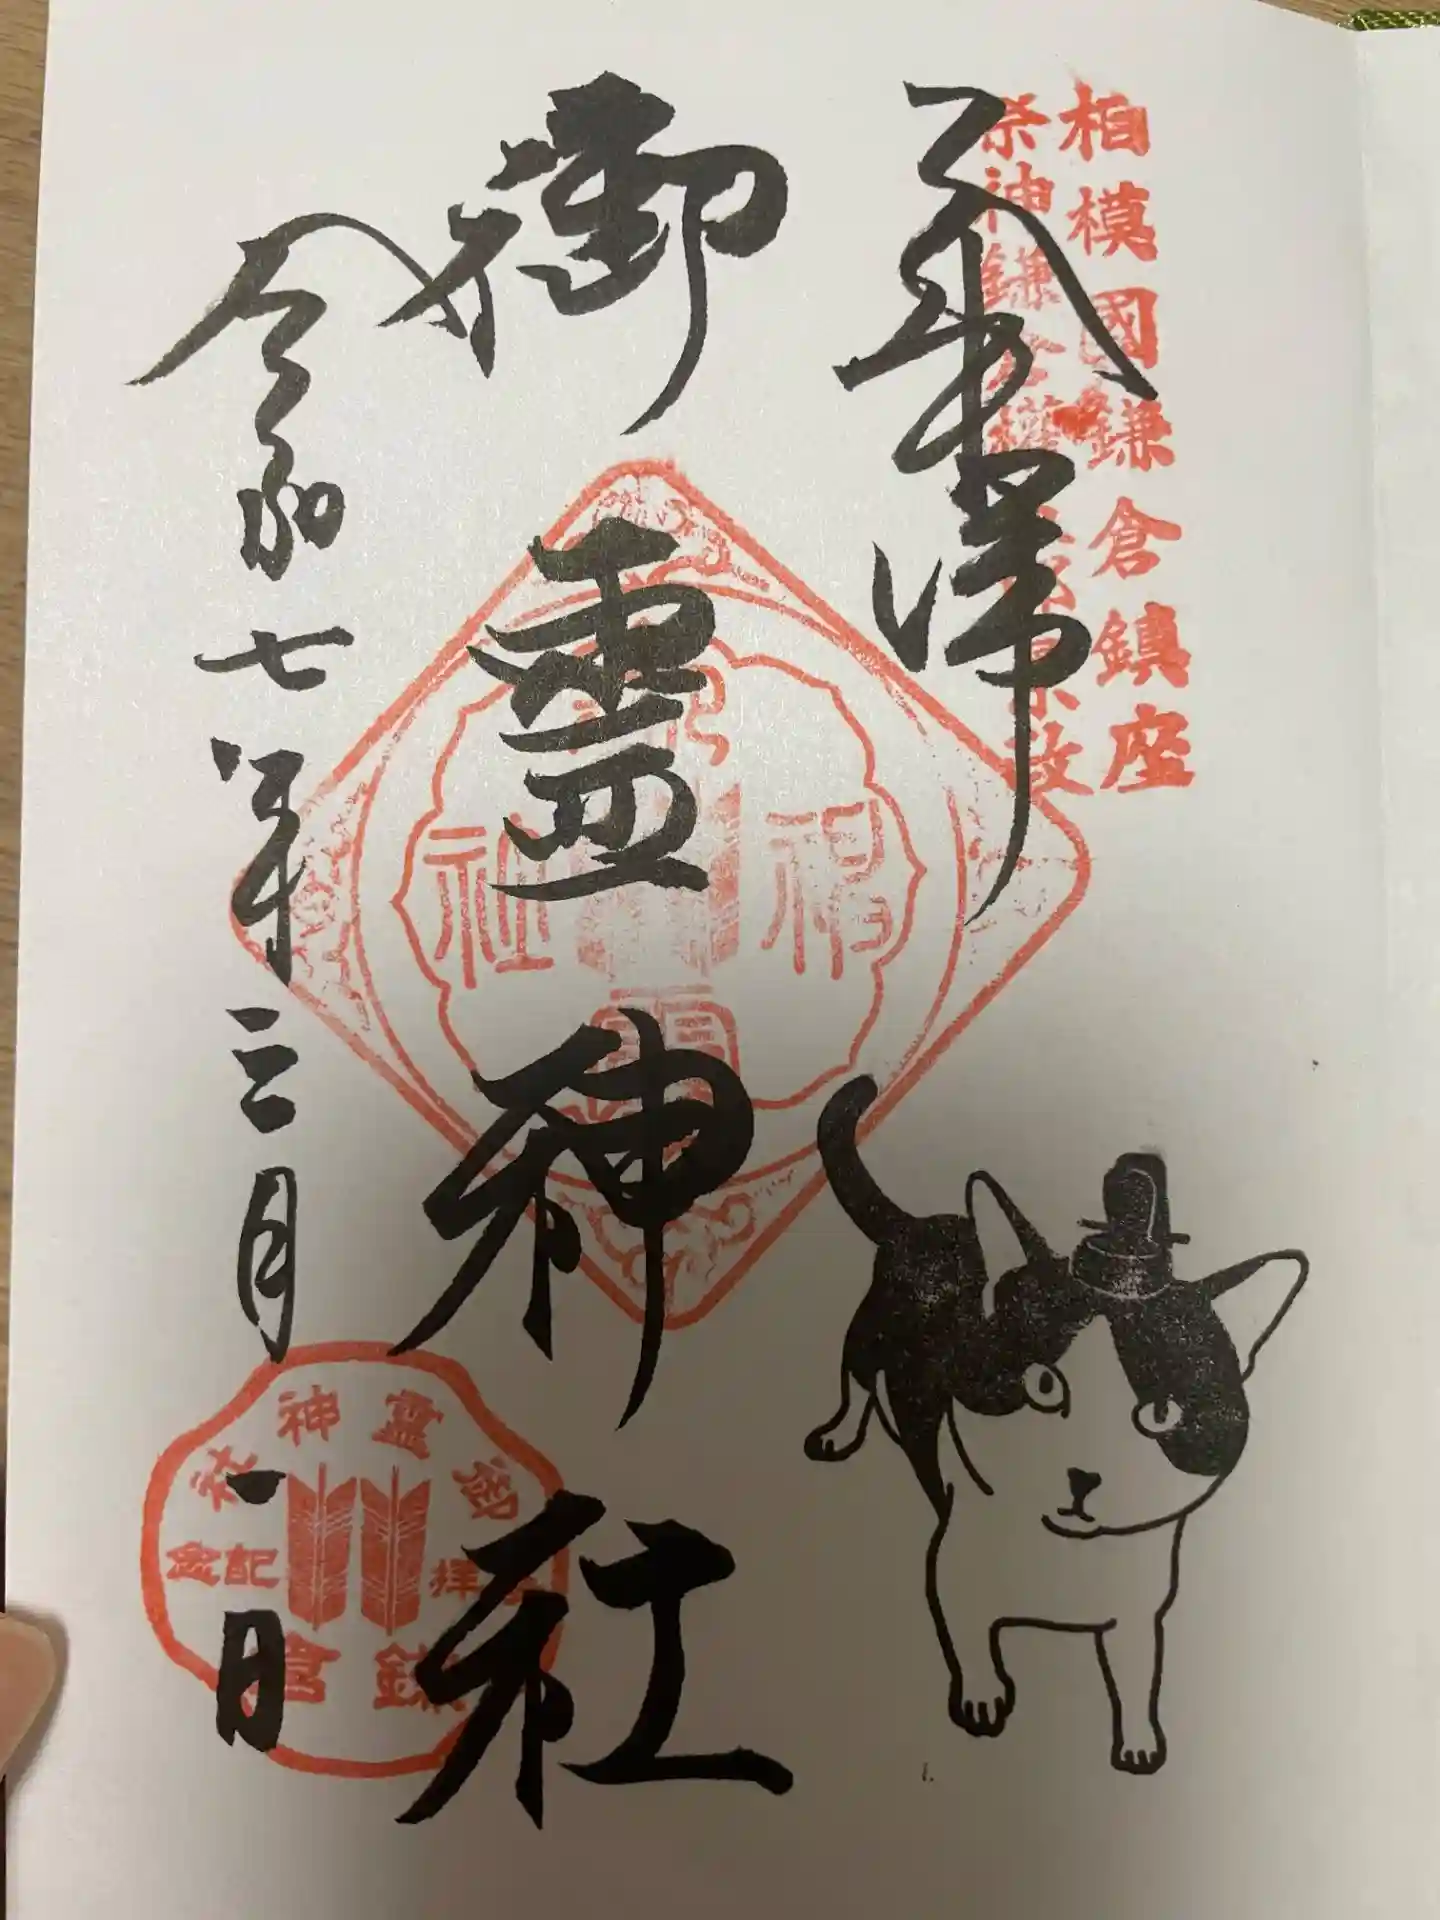 相模國鎌倉鎮座
祭神鎌倉權五郎景政
奉拝
御霊神社
令和七年三月一日
御靈神社
参拝記念
鎌倉